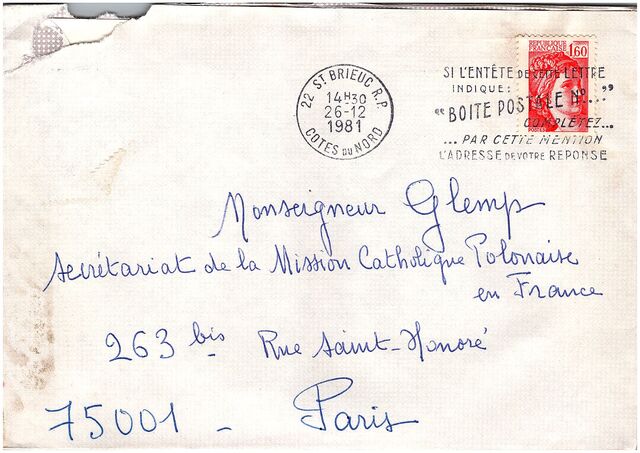 RÉPUBLIQUE FRANÇAISE
1,60
POSTES
22 ST BRIEUC R.P.
14H30
26-12
1981
COTES DU NORD
SI L'ENTÊTE DE CETTE LETTRE
INDIQUE:
"BOITE POSTALE No..."
COMPLÉTEZ...
...PAR CETTE MENTION
L'ADRESSE DE VOTRE REPONSE
Monseigneur Glemp
Secrétariat de la Mission Catholique Polonaise
en France
263 bis Rue Saint-Honoré
75001 - Paris